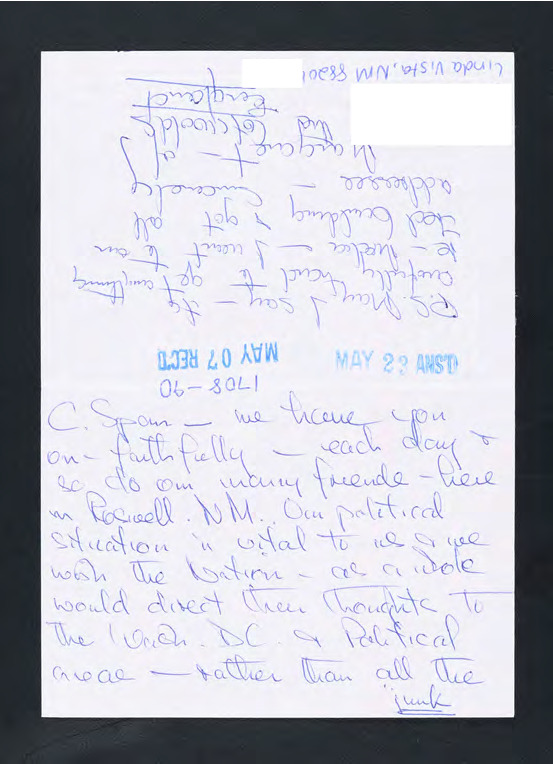 C. Span — we have you
on - faithfully — each day &
so do our many friends - here
in Roswell. NM.. Our political
situation is vital to us & we
wish the Nation - as a whole
would direct their thoughts to
the Wash. DC. & Political
areas — rather than all the
"junk
1708-90
MAY 07 REC'D
MAY 23 ANS'D
P.S. May I say — its
awfully hard to get anything
— I went to our
building & got all
addresses — Sincerely
Margaret — of
the Cotswolds
England
Linda Vista, NM 88201